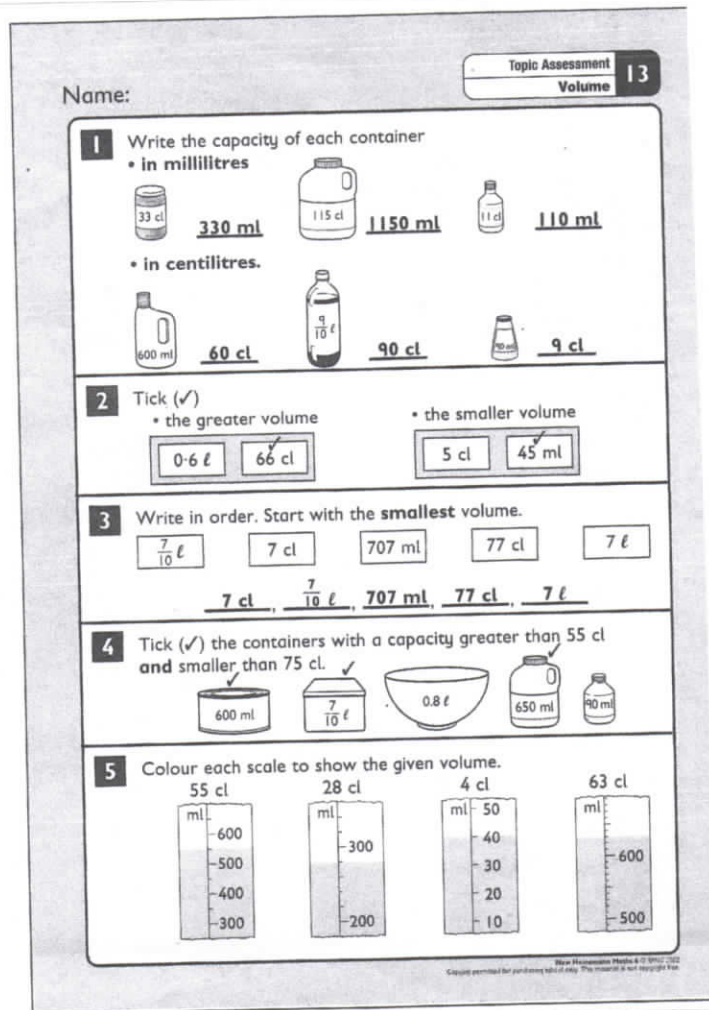 Topic Assessment 13
Volume
Name:
1 Write the capacity of each container
• in millilitres
33 cl 330 ml 115 cl 1150 ml 11 cl 110 ml
• in centilitres.
600 ml 60 cl 9/10 ℓ 90 cl 90 ml 9 cl
2 Tick (✓)
• the greater volume • the smaller volume
0·6 ℓ 66 cl ✓ 5 cl 45 ml ✓
3 Write in order. Start with the smallest volume.
7/10 ℓ 7 cl 707 ml 77 cl 7 ℓ
7 cl, 7/10 ℓ, 707 ml, 77 cl, 7 ℓ
4 Tick (✓) the containers with a capacity greater than 55 cl
and smaller than 75 cl.
✓ ✓ ✓
600 ml 7/10 ℓ 0.8 ℓ 650 ml 90 ml
5 Colour each scale to show the given volume.
55 cl 28 cl 4 cl 63 cl
ml ml ml 50 ml
600 300 40 600
500 30
400 20
300 200 10 500
New Heinemann Maths 6 ©
Copying permitted for purchasing school only. This material is not copyright free.